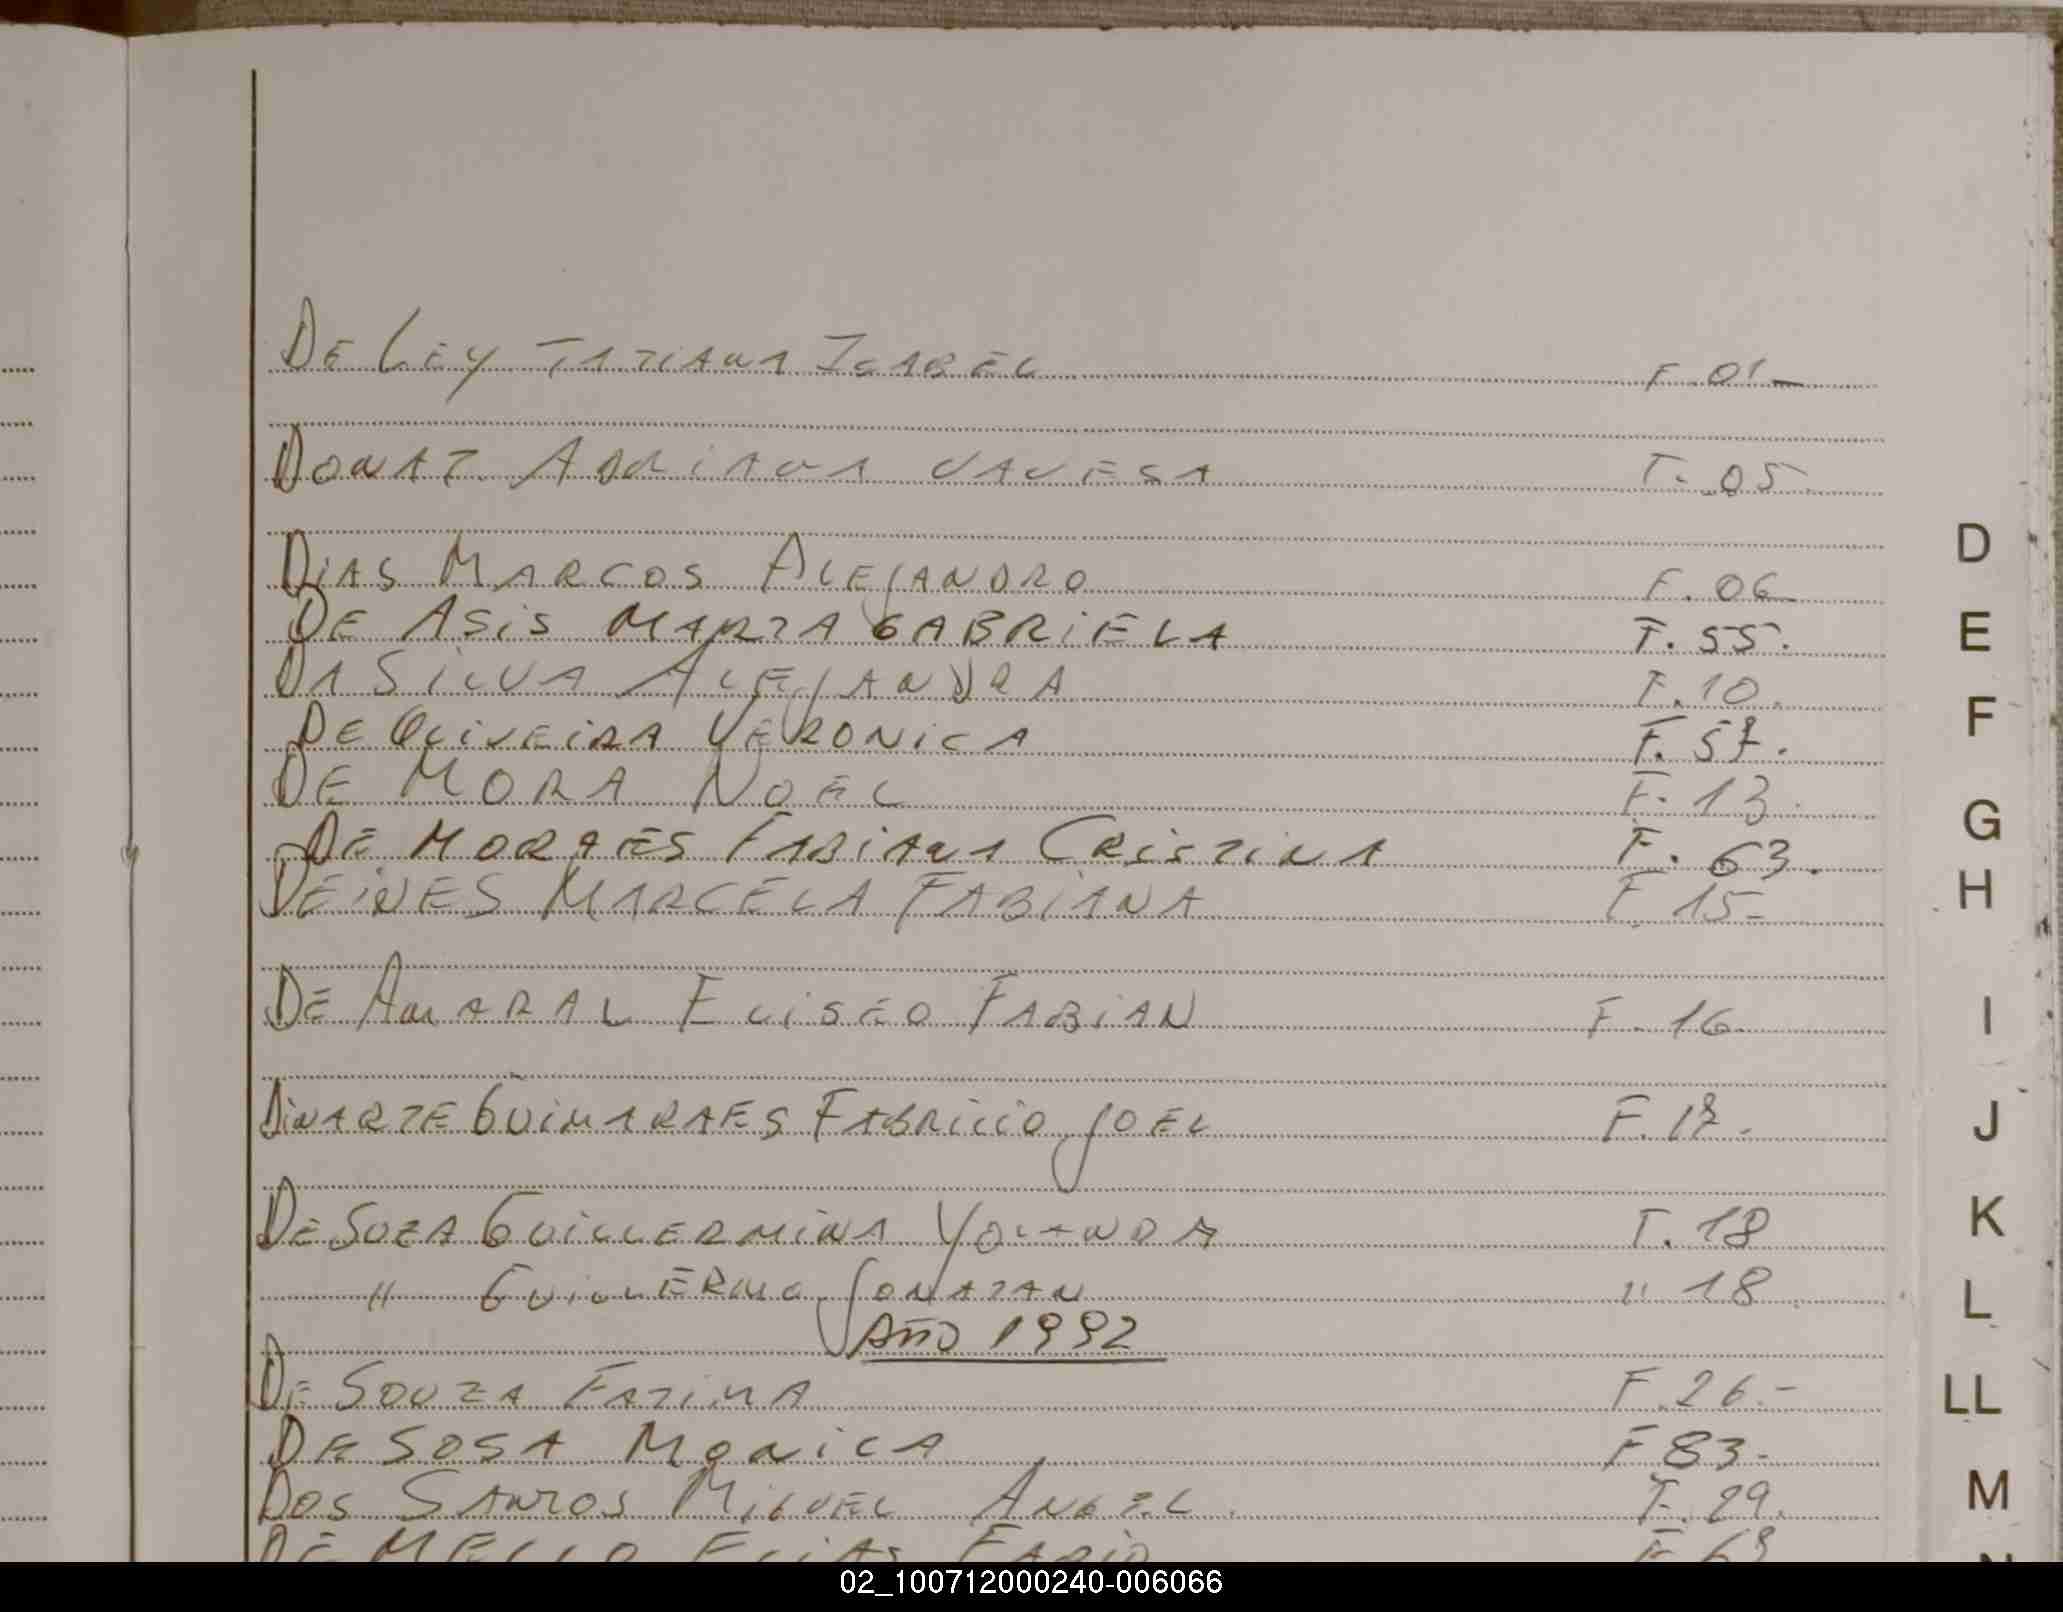 De Ley Tatiana Isabel F. 01-
Donat Adriana Vanesa F. 05.
Dias Marcos Alejandro F. 06-
De Asis Marta Gabriela F. 55.
Da Silva Alejandra F. 10.
De Oliveira Veronica F. 57.
De Mora Noel F. 13.
De Moraes Fabiana Cristina F. 63.
Deines Marcela Fabiana F. 15-
De Amaral Eliseo Fabian F. 16-
Dinarte Guimaraes Fabricio Joel F. 17.
De Soza Guillermina Yolanda F. 18
" Guillermo Jonatan " 18
Año 1992
De Souza Fatima F. 26.-
De Sosa Monica F 83-
Dos Santos Miguel Angel. F. 29.
De Mello Elias Fabio F
D
E
F
G
H
I
J
K
L
LL
M
N
02_100712000240-006066